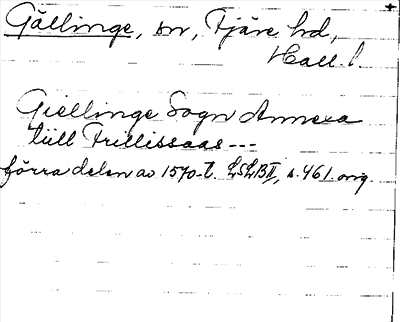 Gällinge, sn, Fjäre hd,
Hall. l.
Giellinge Sogn Annexa
tiill Frillissaas ---
förra delen av 1570-t. LSLB II, s. 461. orig.